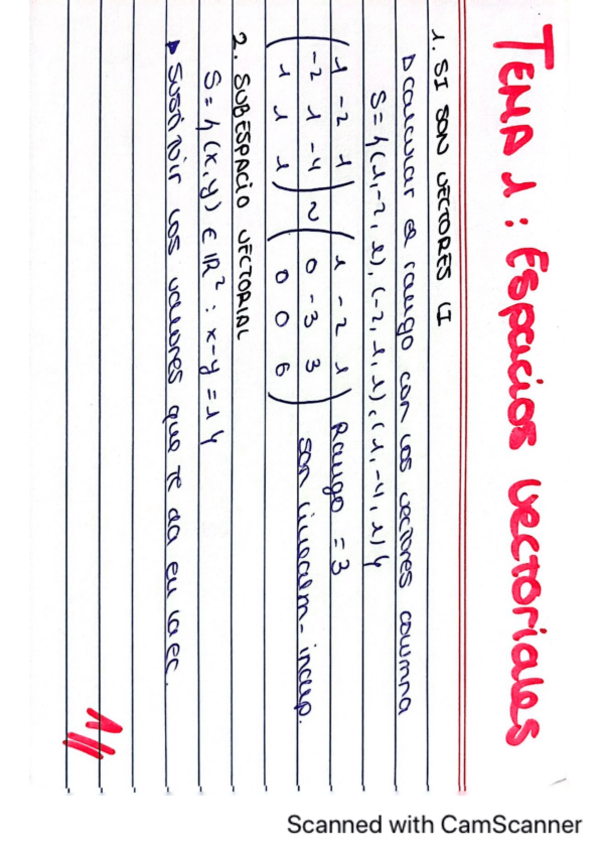 TEMA 1: Espacios vectoriales
1. SI SON VECTORES LI
▷ calcular el rango con los vectores columna
S = { (1,-2,1), (-2,1,1), (1,-4,1) }
( 1 -2 1 ) ( 1 -2 1 ) Rango = 3
( -2 1 -4 ) ~ ( 0 -3 3 ) son linealm- indep.
( 1 1 1 ) ( 0 0 6 )
2. SUBESPACIO VECTORIAL
S = { (x,y) ∈ ℝ² : x-y = 1 }
▶ Sustituir los valores que te da en la ec.
1/1
Scanned with CamScanner